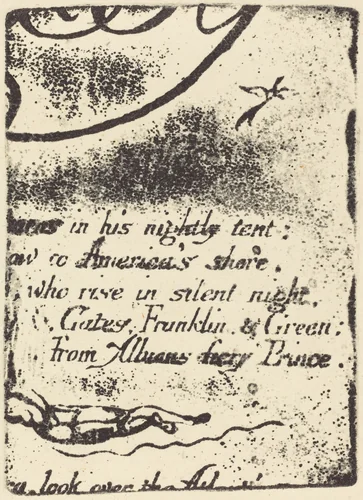 in his nightly tent:
ow to America's shore.
who rise in silent night,
Gates, Franklin & Green;
from Albions fiery Prince.
look over the